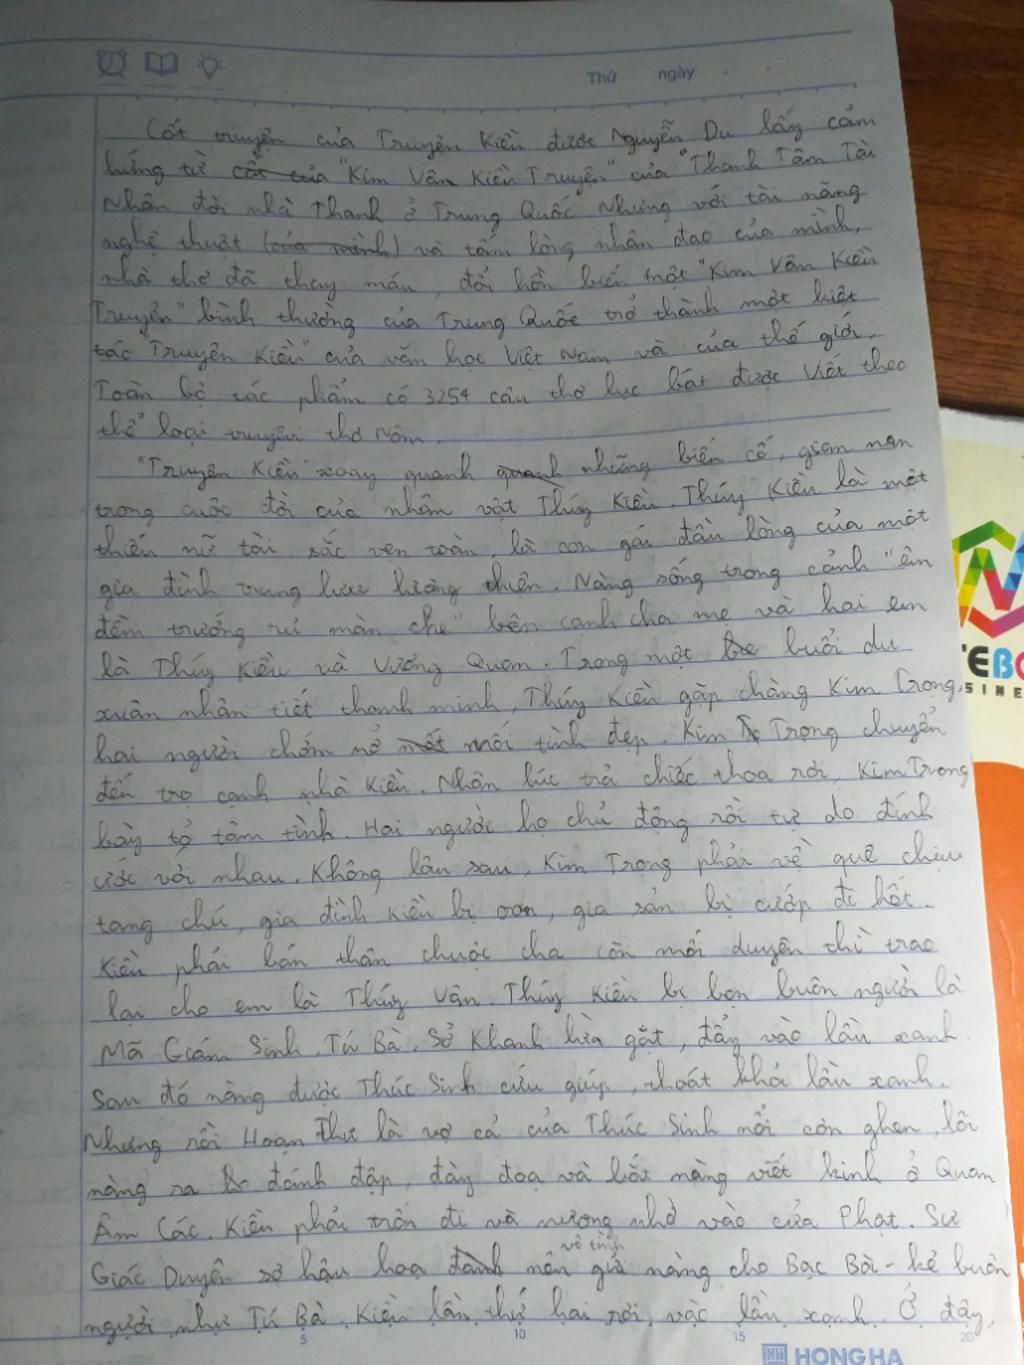 Thứ ngày
Cốt truyện của Truyện Kiều được Nguyễn Du lấy cảm
hứng từ cốt của "Kim Vân Kiều Truyện" của "Thanh Tâm Tài
Nhân đời nhà Thanh ở Trung Quốc". Nhưng với tài năng
nghệ thuật (của mình) và tấm lòng nhân đạo của mình,
nhà thơ đã thay máu, đổi hồn biến một "Kim Vân Kiều
Truyện" bình thường của Trung Quốc trở thành một kiệt
tác "Truyện Kiều" của văn học Việt Nam và của thế giới.
Toàn bộ tác phẩm có 3254 câu thơ lục bát được viết theo
thể loại truyện thơ Nôm.
"Truyện Kiều" xoay quanh quanh những biến cố, gian nan
trong cuộc đời của nhân vật Thúy Kiều. Thúy Kiều là một
thiếu nữ tài sắc vẹn toàn, là con gái đầu lòng của một
gia đình trung lưu lương thiện. Nàng sống trong cảnh "êm
đềm trướng rủ màn che" bên cạnh cha mẹ và hai em
là Thúy Kiều và Vương Quan. Trong một buổi du
xuân nhân tiết thanh minh, Thúy Kiều gặp chàng Kim Trọng,
hai người chớm nở một mối tình đẹp. Kim Trọng chuyển
đến trọ cạnh nhà Kiều. Nhân lúc trả chiếc thoa rơi, Kim Trọng
bày tỏ tâm tình. Hai người họ chủ động rồi tự do đính
ước với nhau. Không lâu sau, Kim Trọng phải về quê chịu
tang chú, gia đình Kiều bị oan, gia sản bị cướp đi hết.
Kiều phải bán thân chuộc cha còn mối duyên thì trao
lại cho em là Thúy Vân. Thúy Kiều bị bọn buôn người là
Mã Giám Sinh, Tú Bà, Sở Khanh lừa gặt, đẩy vào lầu xanh.
Sau đó nàng được Thúc Sinh cứu giúp, thoát khỏi lầu xanh.
Nhưng rồi Hoạn Thư là vợ cả của Thúc Sinh nổi cơn ghen, lôi
nàng ra đánh đập, đày đoạ và bắt nàng viết kinh ở Quan
Âm Các. Kiều phải trốn đi và nương nhờ vào cửa Phật. Sư
vô tình
Giác Duyên sợ hậu hoạ đành nên gửi nàng cho Bạc Bà - kẻ buôn
người như Tú Bà. Kiều lần thứ hai rơi vào lầu xanh. Ở đây,
5 10 15 20
HONG HA
TEBO
SINE